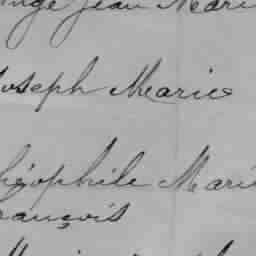 Ange Jean Mari
Joseph Marie
Théophile Mari
François